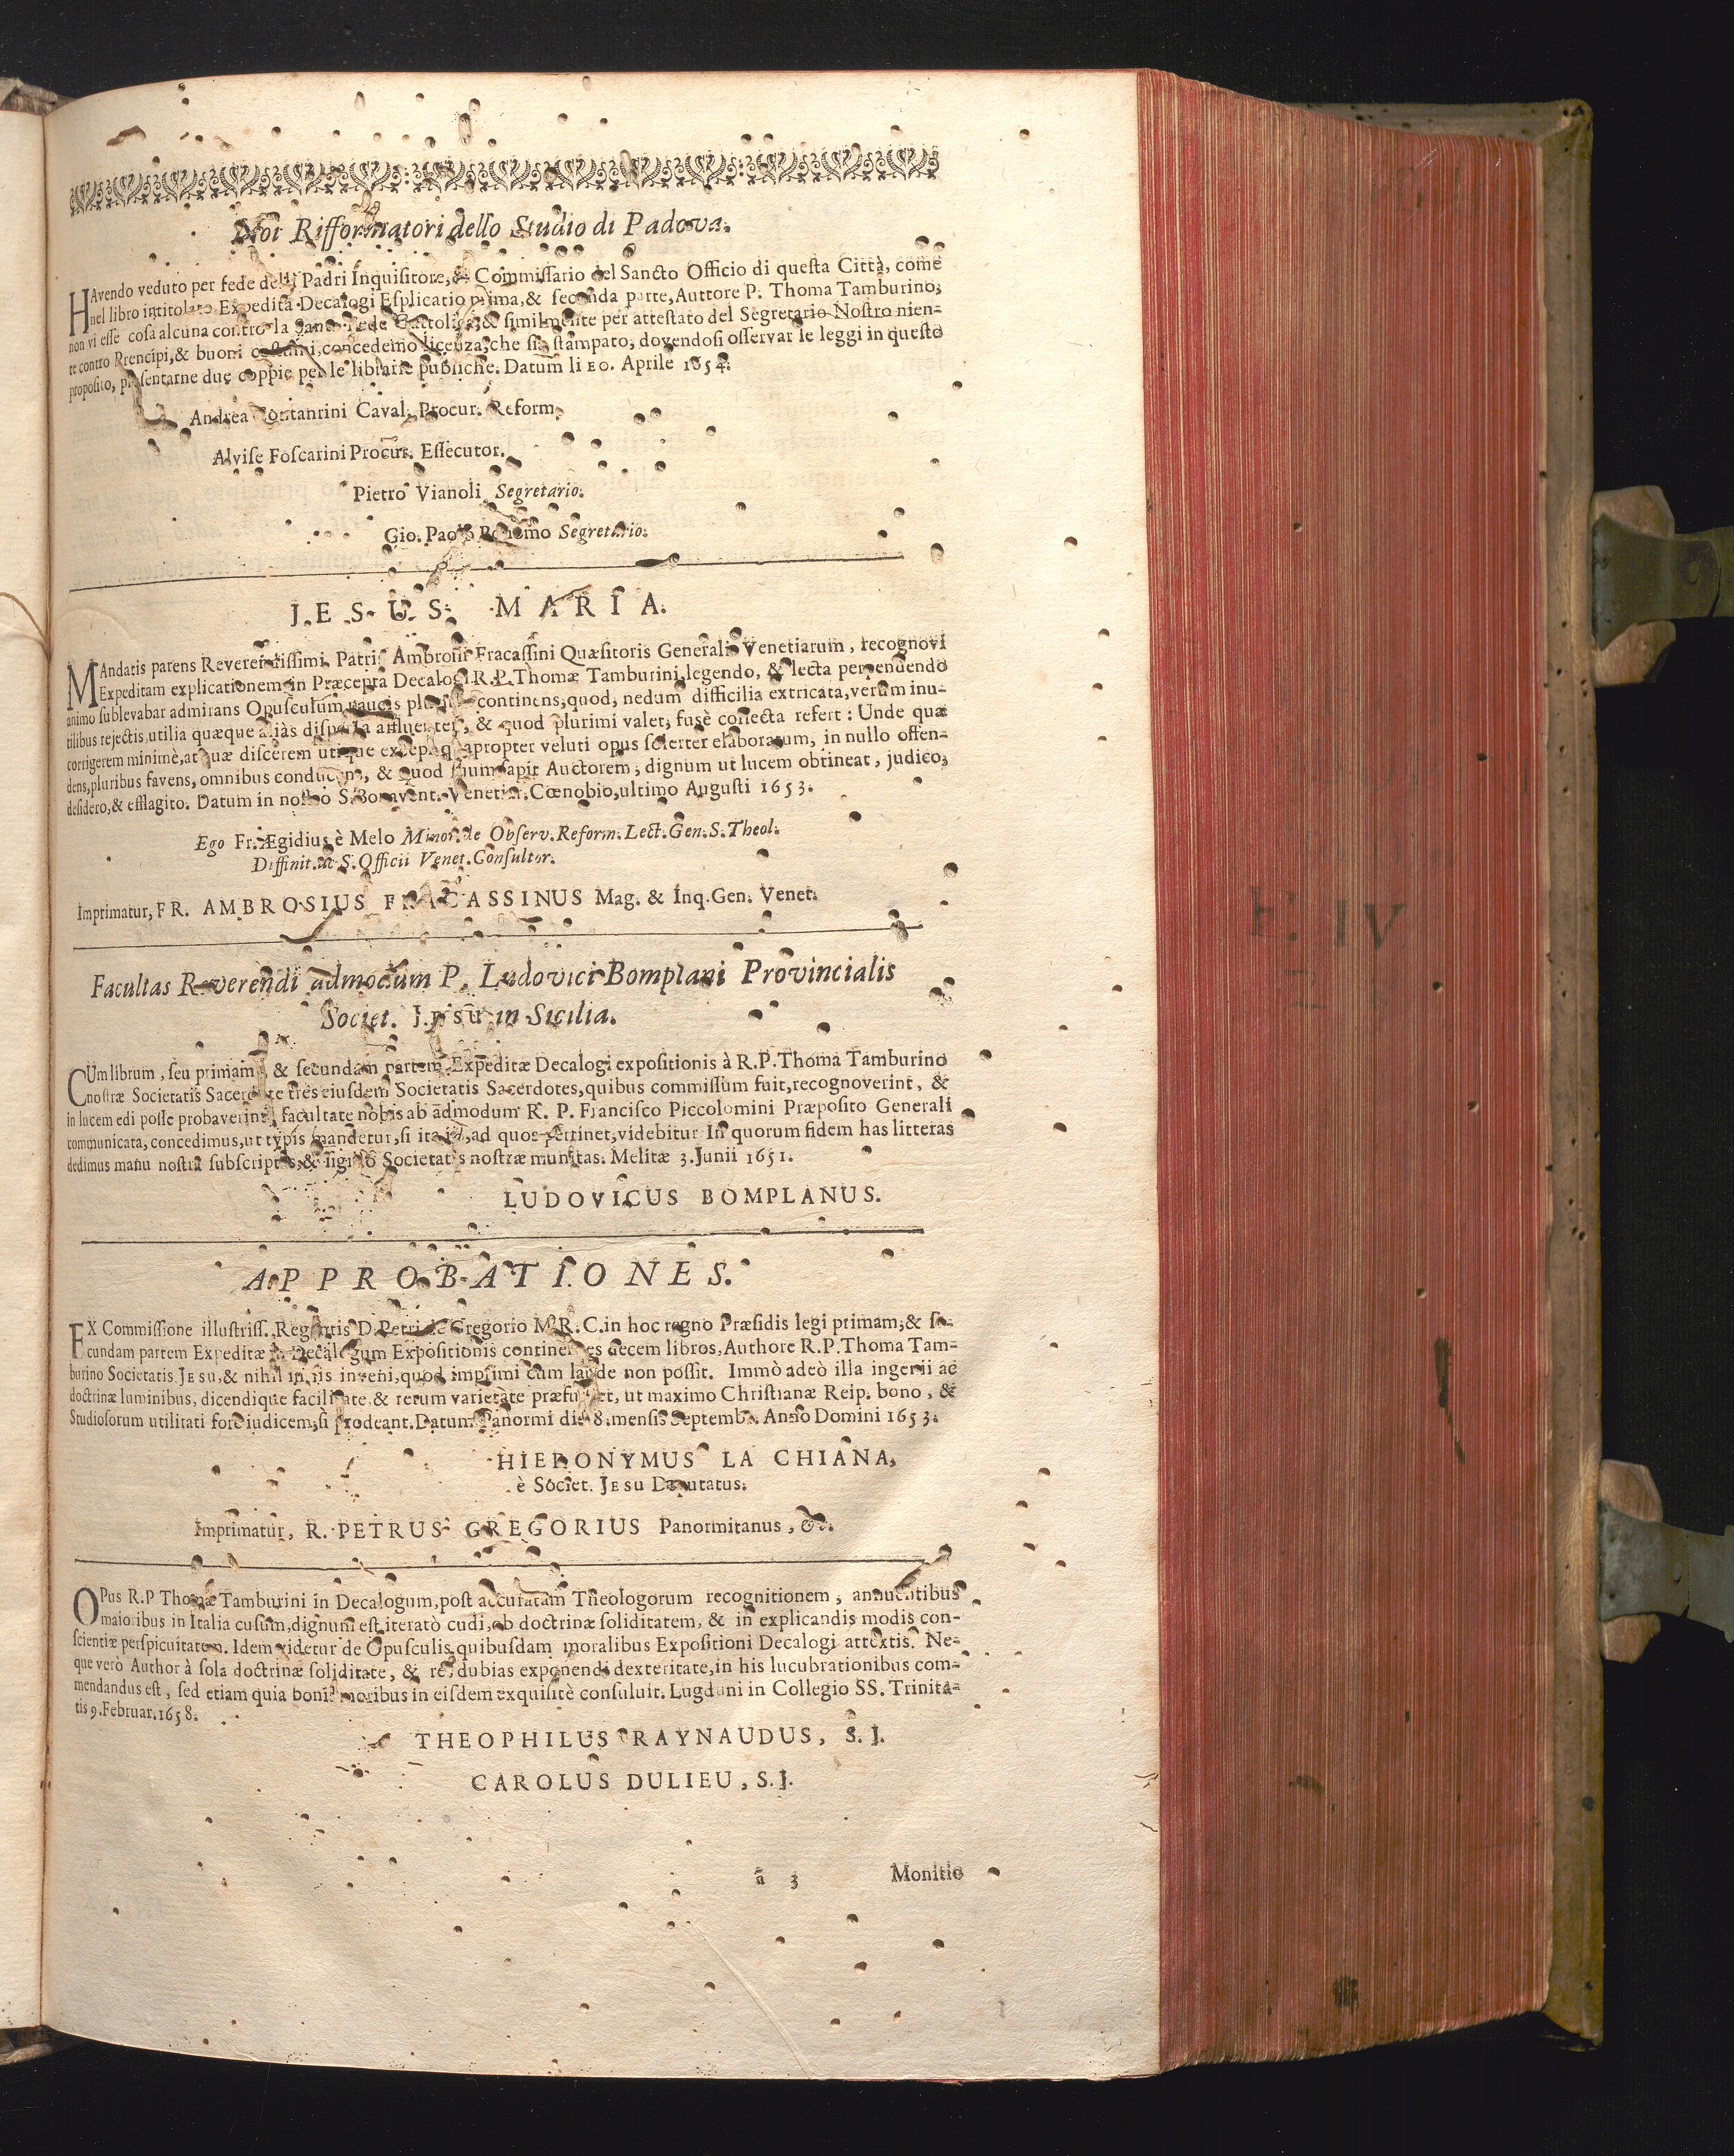 Noi Rifformatori dello Studio di Padova.
HAvendo veduto per fede delli Padri Inquisitore, & Commissario del Sancto Officio di questa Città, come
nel libro intitolato Expedita Decalogi Esplicatio prima, & seconda parte, Auttore P. Thoma Tamburino,
non vi esse cosa alcuna contro la Santa Fede Cattolica, & similmente per attestato del Segretario Nostro nien-
te contro Prencipi, & buoni costumi, concedemo licenza, che sia stampato, dovendosi osservar le leggi in questo
proposito, presentarne due coppie per le librarie publiche. Datum li Aprile 1654.
Andrea Contanrini Caval. Procur. Reform.
Alvise Foscarini Procur. Essecutor.
Pietro Vianoli Segretario.
Gio. Paolo Segretario.
JESUS MARIA.
MAndatis parens Reverendissimi Patris Ambrosii Fracassini Quæsitoris Generalis Venetiarum, recognovi
Expeditam explicationem in Præcepta Decalogi R.P. Thomæ Tamburini, legendo, & lecta perpendendo
animo sublevabar admirans Opusculum paucis continens, quod, nedum difficilia extricata, verum inu-
tilibus rejectis, utilia quæque aliàs dispersa affluenter, & quod plurimi valet, fusè collecta refert: Unde quæ
corrigerem minimè, at quæ discerem utique excepi, quapropter veluti opus solerter elaboratum, in nullo offen-
dens, pluribus favens, omnibus conducens, & quod suum sapit Auctorem, dignum ut lucem obtineat, judico,
desidero, & efflagito. Datum in nostro S. Bonavent. Venetiar. Cœnobio, ultimo Augusti 1653.
Ego Fr. Ægidius è Melo Minor. de Observ. Reform. Lect. Gen. S. Theol.
Diffinit. ac S. Officii Venet. Consultor.
Imprimatur, FR. AMBROSIUS FRACASSINUS Mag. & Inq. Gen. Venet.
Facultas Reverendi admodum P. Ludovici Bomplani Provincialis
Societ. JESU in Sicilia.
CUm librum, seu primam, & secundam partem Expeditæ Decalogi expositionis à R.P. Thoma Tamburino
nostræ Societatis Sacerdote tres eiusdem Societatis Sacerdotes, quibus commissum fuit, recognoverint, &
in lucem edi posse probaverint, facultate nobis ab admodum R. P. Francisco Piccolomini Præposito Generali
communicata, concedimus, ut typis mandetur, si ita iis, ad quos pertinet, videbitur. In quorum fidem has litteras
dedimus manu nostra subscriptas, & sigillo Societatis nostræ munitas. Melitæ 3. Junii 1651.
LUDOVICUS BOMPLANUS.
APPROBATIONES.
EX Commissione illustriss. Regentis D. Petri de Gregorio M. R. C. in hoc regno Præsidis legi primam, & se-
cundam partem Expeditæ in Decalogum Expositionis continentes decem libros, Authore R. P. Thoma Tam-
burino Societatis JESU, & nihil in iis inveni, quod imprimi cum laude non possit. Immò adeò illa ingenii ac
doctrinæ luminibus, dicendique facilitate, & rerum varietate præfulget, ut maximo Christianæ Reip. bono, &
Studiosorum utilitati fore iudicem, si prodeant. Datum Panormi die 8. mensis Septemb. Anno Domini 1653.
HIERONYMUS LA CHIANA,
è Societ. JESU Deputatus.
Imprimatur, R. PETRUS GREGORIUS Panormitanus, &c.
OPus R.P Thomæ Tamburini in Decalogum, post accuratam Theologorum recognitionem, annuentibus
maioribus in Italia cusum, dignum est iteratò cudi, ob doctrinæ soliditatem, & in explicandis modis con-
scientiæ perspicuitatem. Idem videtur de Opusculis quibusdam moralibus Expositioni Decalogi attextis. Ne-
que verò Author à sola doctrinæ soliditate, & res dubias exponendi dexteritate, in his lucubrationibus com-
mendandus est, sed etiam quia bonis moribus in eisdem exquisitè consuluit. Lugduni in Collegio SS. Trinita-
tis 9. Februar. 1658.
THEOPHILUS RAYNAUDUS, S. J.
CAROLUS DULIEU, S. J.
ã 3 Monitio